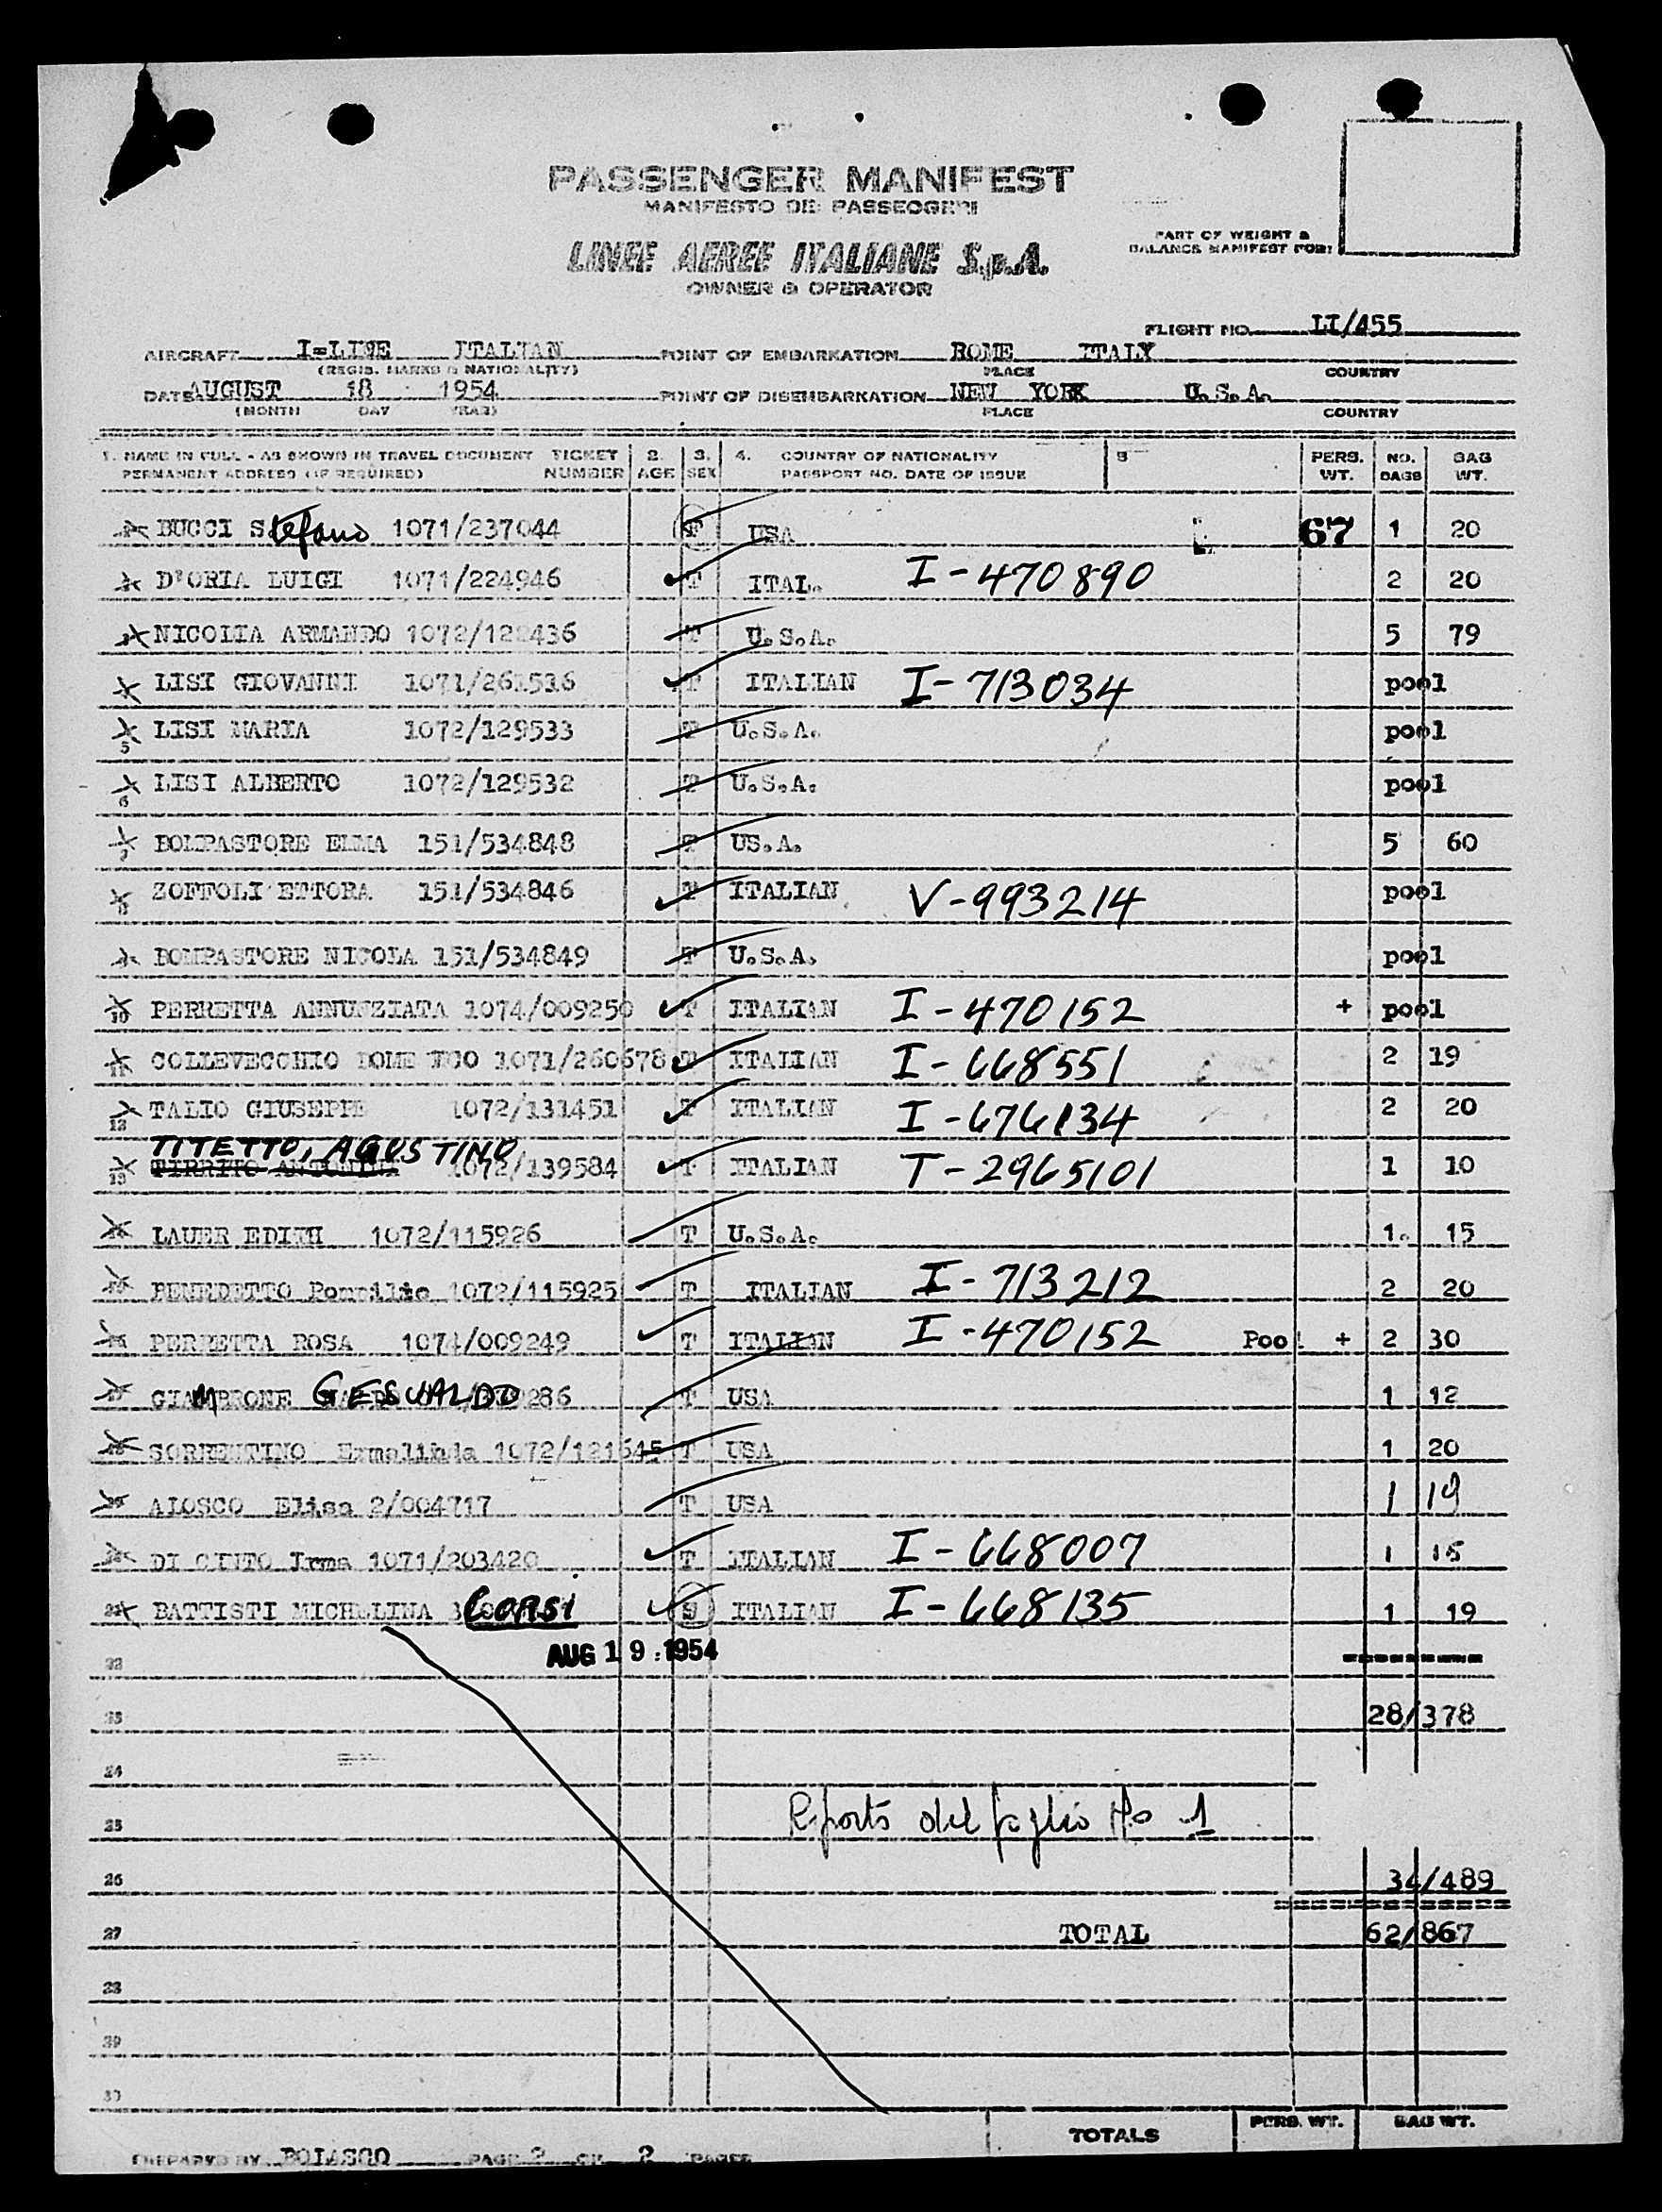 PASSENGER MANIFEST
MANIFESTO DEI PASSEGGERI
LINEE AEREE ITALIANE S.p.A.
OWNER & OPERATOR
PART OF WEIGHT &
BALANCE MANIFEST FOR:
FLIGHT NO. LI/455
AIRCRAFT I=LINE ITALIAN POINT OF EMBARKATION ROME ITALY
(REGIS. MARKS & NATIONALITY) PLACE COUNTRY
DATE AUGUST 18 1954 POINT OF DISEMBARKATION NEW YORK U.S.A.
(MONTH DAY YEAR) PLACE COUNTRY
1. NAME IN FULL - AS SHOWN IN TRAVEL DOCUMENT TICKET 2. 3. 4. COUNTRY OF NATIONALITY 5 PERS. NO. BAG
PERMANENT ADDRESS (IF REQUIRED) NUMBER AGE SEX PASSPORT NO. DATE OF ISSUE WT. BAGS WT.
BUCCI Stefano 1071/237044 F USA 67 1 20
D'ORIA LUIGI 1071/224946 T ITAL. I-470890 2 20
NICOLIA ARMANDO 1072/122436 T U.S.A. 5 79
LISI GIOVANNI 1071/261516 T ITALIAN I-713034 pool
5 LISI MARIA 1072/129533 T U.S.A. pool
6 LISI ALBERTO 1072/129532 T U.S.A. pool
7 BOMPASTORE ELMA 151/534848 T US.A. 5 60
8 ZOFFOLI ETTORA 151/534846 T ITALIAN V-993214 pool
BOMPASTORE NICOLA 151/534849 T U.S.A. pool
10 PERRETTA ANNUNZIATA 1074/009250 T ITALIAN I-470152 + pool
11 COLLEVECCHIO DOME ICO 1071/260678 T ITALIAN I-668551 2 19
12 TALIO GIUSEPPE 1072/131451 T ITALIAN I-676134 2 20
TITETTO, AGUSTINO
13 TIRRITO ANTONINA 1072/139584 T ITALIAN T-2965101 1 10
LAUER EDITH 1072/115926 T U.S.A. 1 15
BENEDETTO Pompilio 1072/115925 T ITALIAN I-713212 2 20
PERRETTA ROSA 1074/009249 T ITALIAN I-470152 Pool + 2 30
GIAMBRONE GESUALDO 286 T USA 1 12
SORRENTINO Ermelinda 1072/121645 T USA 1 20
ALOSCO Elisa 2/004717 T USA 1 19
DI CINTO Irma 1071/203420 T ITALIAN I-668007 1 15
21 BATTISTI MICHELINA CORSI S ITALIAN I-668135 1 19
22 AUG 19 1954
23 28/378
24
25 Riporto del foglio No 1
26 34/489
27 TOTAL 62/867
28
29
30
TOTALS PERS. WT. BAG WT.
PREPARED BY BOIASCO PAGE 2 OF 2 PAGES